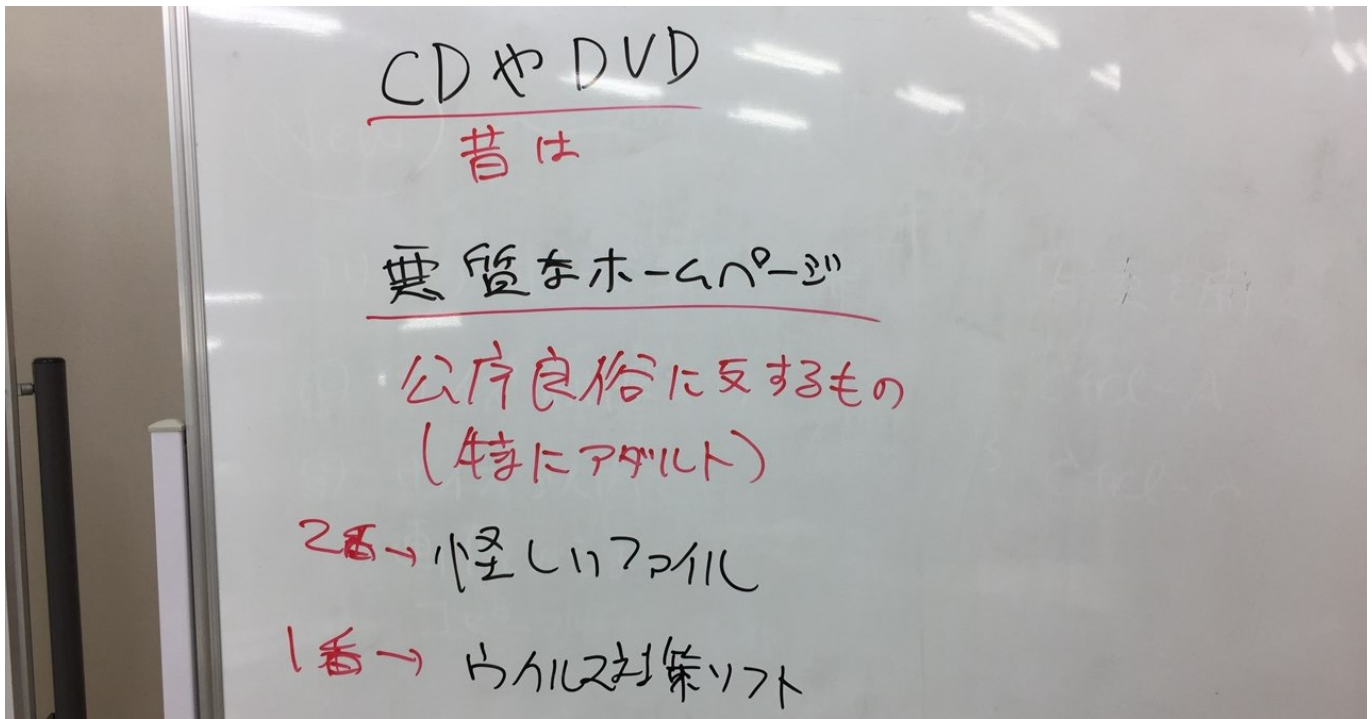 CDやDVD
昔は
悪質なホームページ
公序良俗に反するもの
(特にアダルト)
2番→怪しいファイル
1番→ウイルス対策ソフト